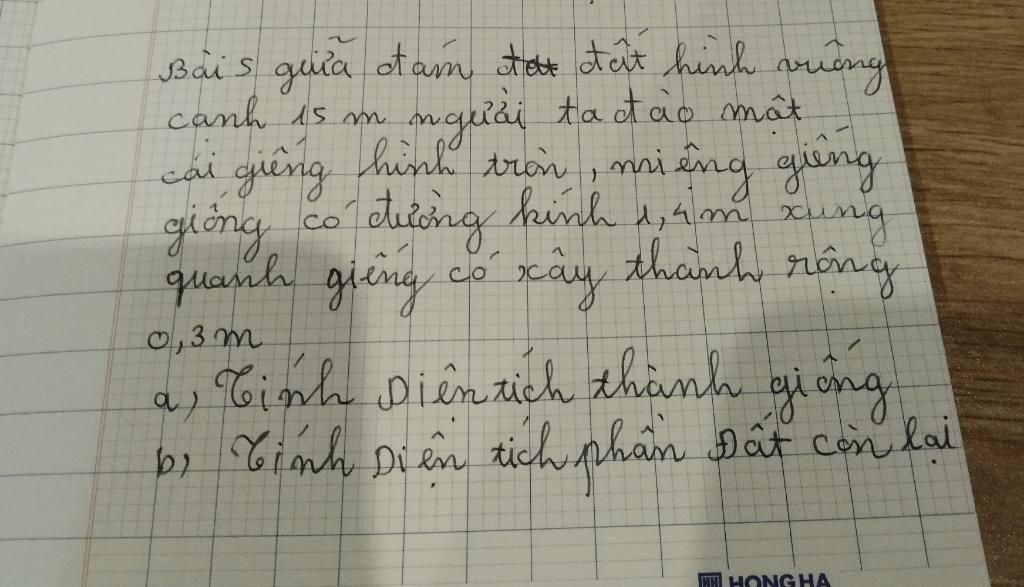 Bài 5 giữa đám đất hình vuông
cạnh 15 m người ta đào một
cái giếng hình tròn, miệng giếng
giếng có đường kính 1,4m xung
quanh giếng có xây thành rộng
0,3m
a, Tính Diện tích thành giếng
b, Tính Diện tích phần Đất còn lại
HONG HA